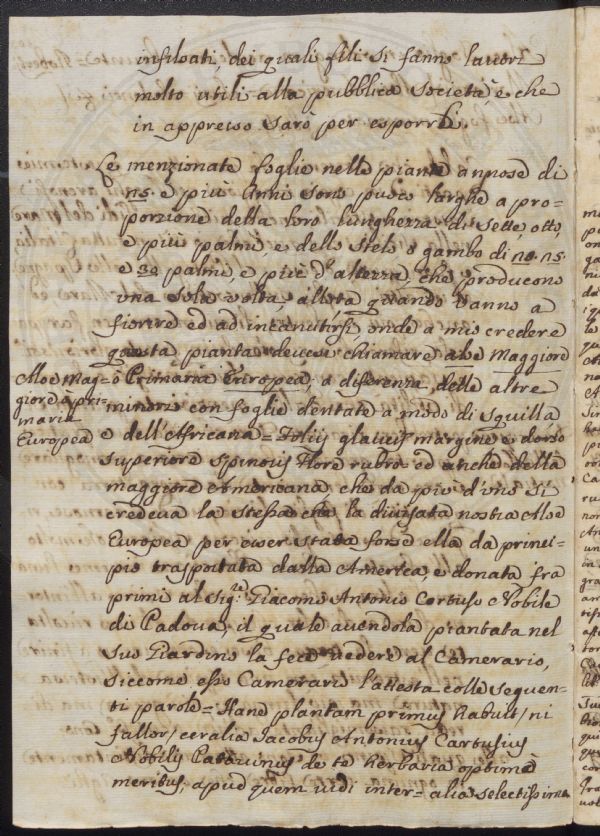 infilsati, dei quali fili si fanno lavori
molto utili alla pubblica Società, e che
in appresso sarò per esporrli.
Le menzionate foglie nelle piante annose di
15. e più Anni sono poste larghe a pro-
porzione della loro lunghezza di sette, otto,
e più palmi, e dello stelo o gambo di 10. 15.
e 30 palmi, e più d'altezza, che producono
una sola volta, allota quando vanno a
fiorire ed ad incanutirsi onde a mio credere
questa pianta devesi chiamare aloe Maggiore
ò Primaria Europea, a diferenza delle altre
minori con foglie dentate a modo di squilla
e dell'Africana = Folijs glaucis margine e dorso
superiore spinosis flore rubro ed anche della
maggiore Americana che da più d'uno si
credeva la stessa che la divisata nostra Aloe
Europea per esser stata forse ella da princi-
pio trasportata dalla America, e donata fra
primi al Sigre. Giacomo Antonio Cortuso Nobile
di Padova, il quale avendola piantata nel
suo Giardino la fece vedere al Camerario,
siccome esso Camerario l'attesta colle seguen-
ti parole = Hanc plantam primus habuit / ni
fallor / ceralia Jacobus Antonius Cartusius
Nobilis Patavinus de re herbaria optimè
meritus, apud quem vidi inter = alia selectissima
Aloe Mag-
giore ò pri-
maria
Europea